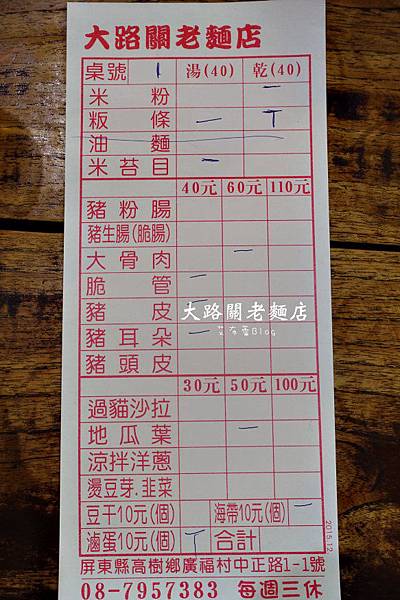 大路關老麵店
桌號 1 湯(40) 乾(40)
米粉 一
粄條 一 丅
油麵
米苔目 一
40元 60元 110元
豬粉腸
豬生腸(脆腸)
大骨肉 一
脆管 一
豬皮 一
大路關老麵店
豬耳朵 一
艾方雷Blog
豬頭皮
30元 50元 100元
過貓沙拉
地瓜葉 一
涼拌洋蔥
燙豆芽.韭菜
豆干10元(個) 海帶10元(個) 一
滷蛋10元(個) 丅 合計
2015.12.
屏東縣高樹鄉廣福村中正路1-1號
08-7957383 每週三休